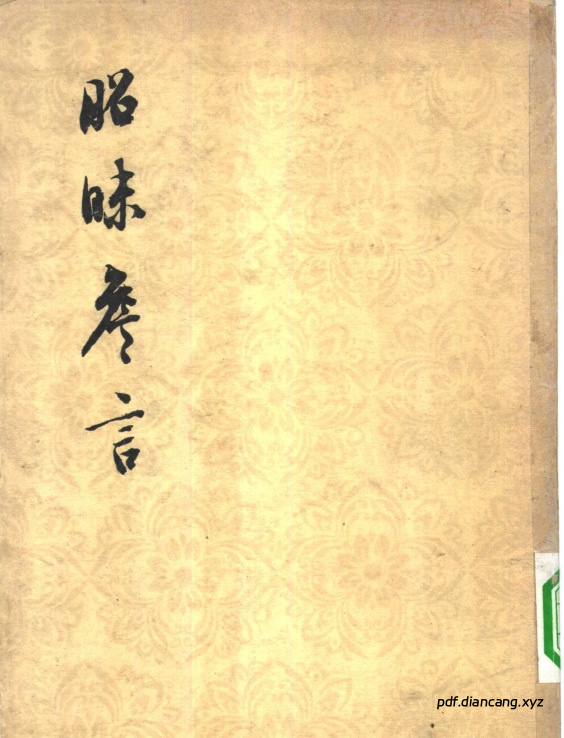 昭昧詹言
pdf.diancang.xyz